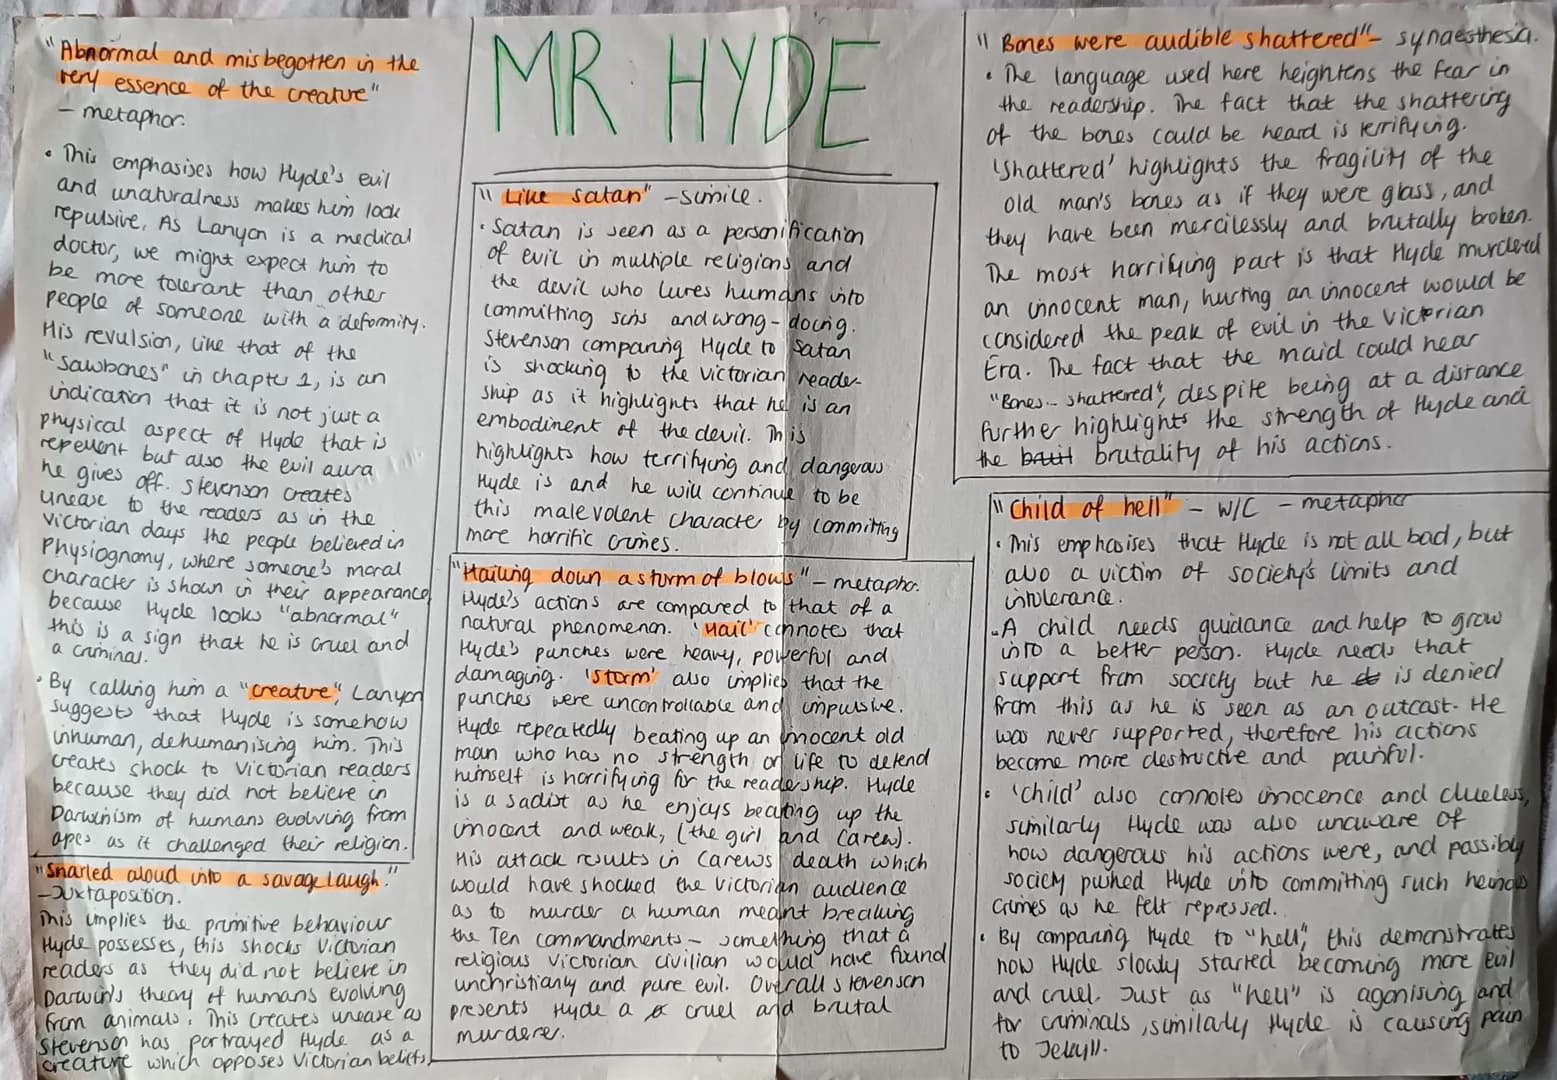 "Abnormal and misbegotten in the
very essence of the creature"
- metaphor.
• This emphasises how Hyde's evil
and unaturalness makes him look
repulsive. As Lanyon is a medical
doctor, we might expect him to
be more tolerant than other
people of someone with a deformity.
His revulsion, like that of the
"Sawbones" in chapter 1, is an
indication that it is not just a
physical aspect of Hyde that is
repellent but also the evil aura
he gives off. Stevenson creates
unease to the readers as in the
Victorian days the people believed in
Physiognomy, where someone's moral
character is shown in their appearance
because Hyde looks "abnormal"
this is a sign that he is cruel and
a criminal.
• By calling him a "creature", Lanyon
suggests that Hyde is somehow
inhuman, dehumanising him. This
creates shock to Victorian readers
because they did not believe in
Darwinism of humans evolving from
apes as it challenged their religion.
"Snarled aloud into a savage laugh."
- Juxtaposition.
This implies the primitive behaviour
Hyde possesses, this shocks Victorian
readers as they did not believe in
Darwin's theory of humans evolving
from animals. This creates unease as
Stevenson has portrayed Hyde as a
creature which opposes Victorian beliefs.
MR HYDE
"Like satan" - simile.
• Satan is seen as a personification
of evil in multiple religions and
the devil who lures humans into
committing sins and wrong-doing.
Stevenson comparing Hyde to Satan
is shocking to the Victorian reader-
ship as it highlights that he is an
embodiment of the devil. This
highlights how terrifying and dangerous
Hyde is and he will continue to be
this malevolent character by committing
more horrific crimes.
"Hailing down a storm of blows" - metaphor.
Hyde's actions are compared to that of a
natural phenomenon. 'Hail' connotes that
Hyde's punches were heavy, powerful and
damaging. 'Storm' also implies that the
punches were uncontrollable and impulsive.
Hyde repeatedly beating up an innocent old
man who has no strength or life to defend
himself is horrifying for the readership. Hyde
is a sadist as he enjoys beating up the
innocent and weak, (the girl and Carew).
His attack results in Carews death which
would have shocked the Victorian audience
as to murder a human meant breaking
the Ten commandments - something that a
religious Victorian civilian would have found
unchristiany and pure evil. Overall Stevenson
presents Hyde a cruel and brutal
murderer.
"Bones were audible shattered" - synaesthesia.
• The language used here heightens the fear in
the readership. The fact that the shattering
of the bones could be heard is terrifying.
'Shattered' highlights the fragility of the
old man's bones as if they were glass, and
they have been mercilessly and brutally broken.
The most horrifying part is that Hyde murdered
an innocent man, hurting an innocent would be
considered the peak of evil in the Victorian
Era. The fact that the maid could hear
"Bones... shattered", despite being at a distance
further highlights the strength of Hyde and
the brutality of his actions.
"Child of hell" - W/C - metaphor
• This emphasises that Hyde is not all bad, but
also a victim of society's limits and
intolerance.
• A child needs guidance and help to grow
into a better person. Hyde needs that
support from society but he is denied
from this as he is seen as an outcast. He
was never supported, therefore his actions
become more destructive and painful.
• 'Child' also connotes innocence and clueless,
similarly Hyde was also unaware of
how dangerous his actions were, and possibly
society pushed Hyde into committing such heinous
crimes as he felt repressed.
• By comparing Hyde to "hell", this demonstrates
how Hyde slowly started becoming more evil
and cruel. Just as "hell" is agonising and
for criminals, similarly Hyde is causing pain
to Jekyll.